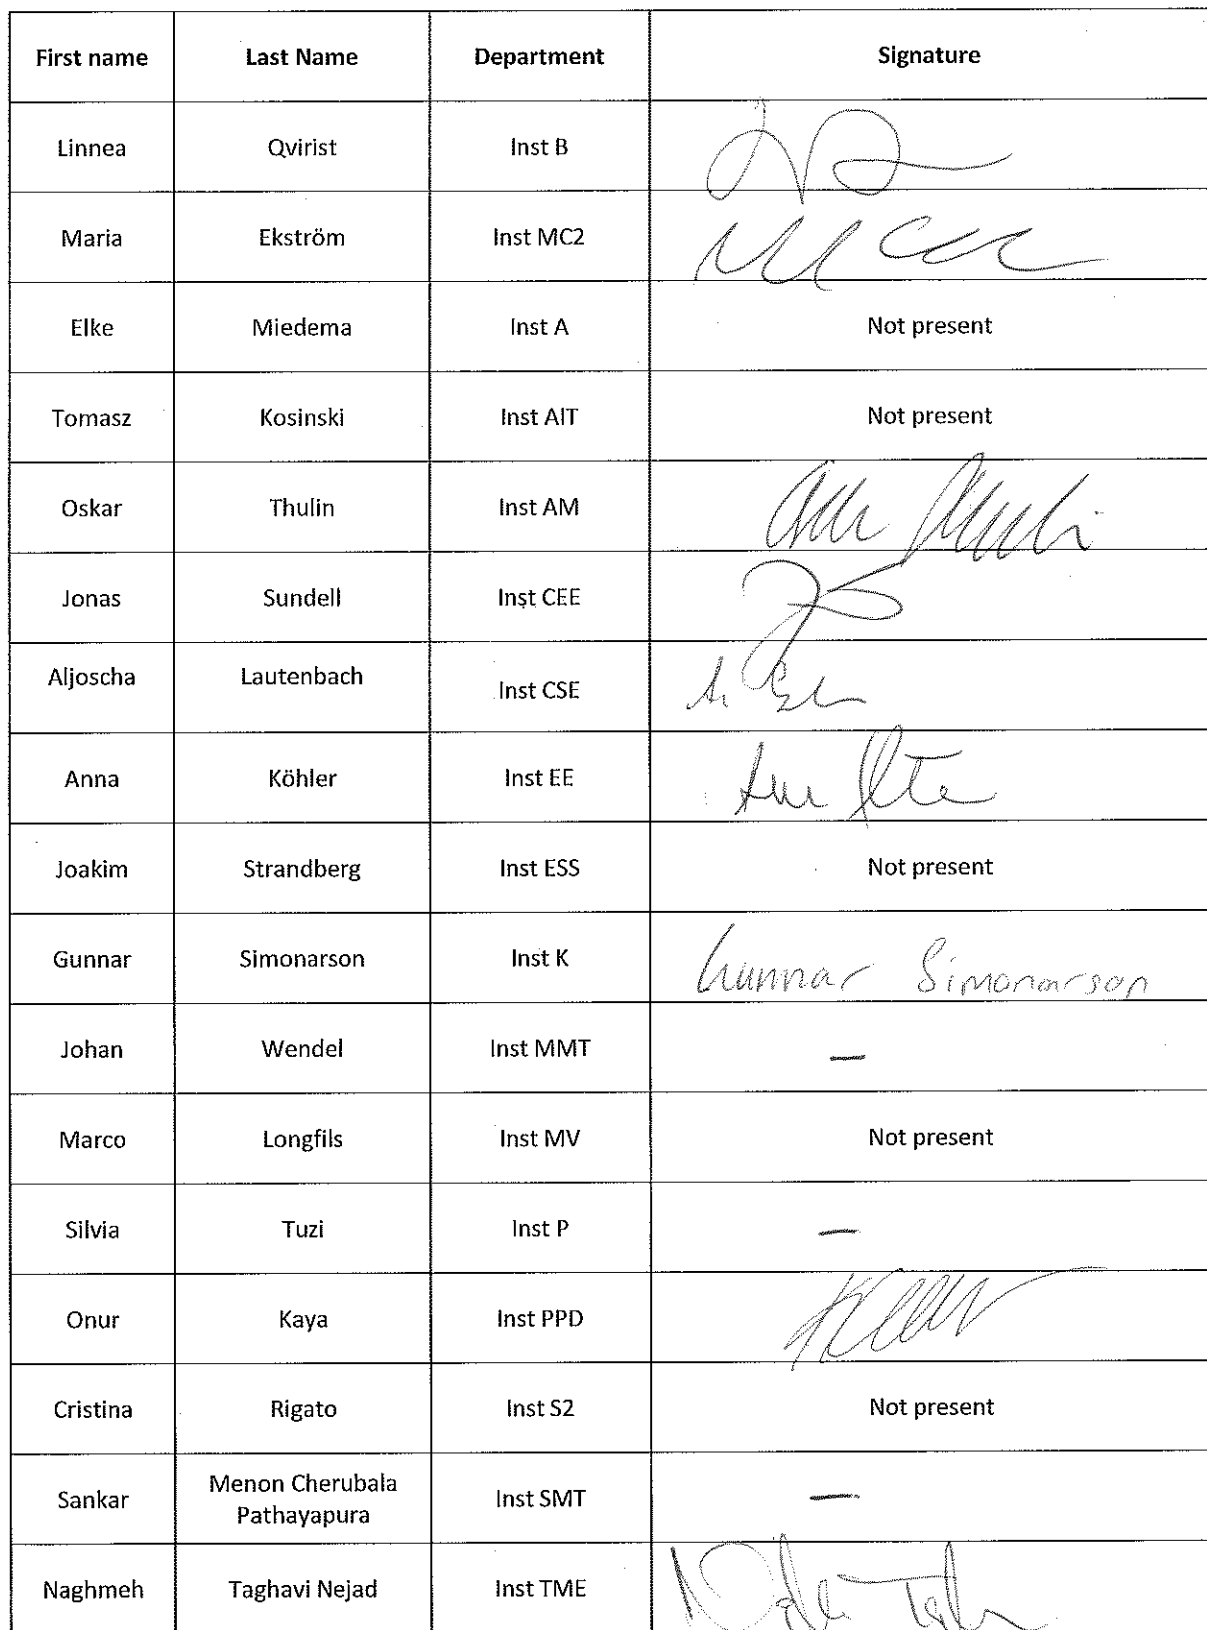 First name Last Name Department Signature
Linnea Qvirist Inst B
Maria Ekström Inst MC2
Elke Miedema Inst A Not present
Tomasz Kosinski Inst AIT Not present
Oskar Thulin Inst AM
Jonas Sundell Inst CEE
Aljoscha Lautenbach Inst CSE
Anna Köhler Inst EE
Joakim Strandberg Inst ESS Not present
Gunnar Simonarson Inst K Gunnar Simonarson
Johan Wendel Inst MMT —
Marco Longfils Inst MV Not present
Silvia Tuzi Inst P —
Onur Kaya Inst PPD
Cristina Rigato Inst S2 Not present
Sankar Menon Cherubala
Pathayapura Inst SMT —
Naghmeh Taghavi Nejad Inst TME